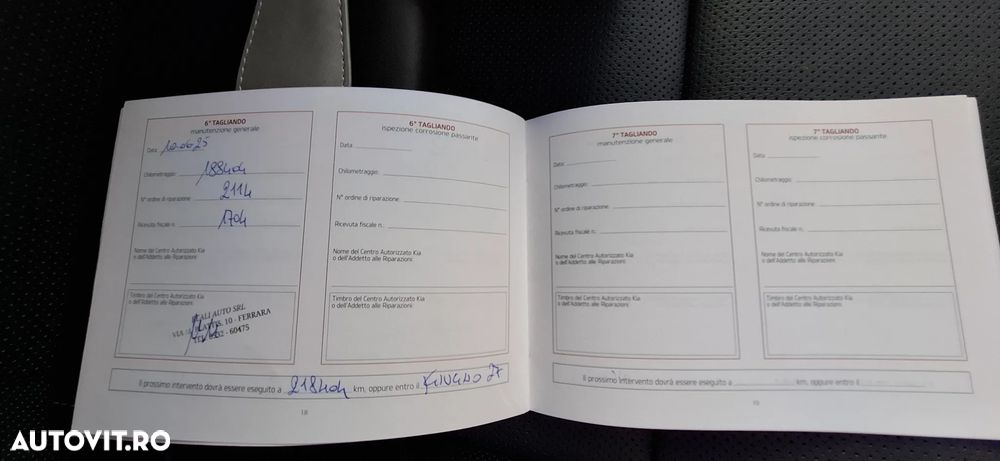 6° TAGLIANDO
manutenzione generale
Data:
Chilometraggio: 188404
N° ordine di riparazione: 2114
Ricevuta fiscale n.: 1704
Nome del Centro Autorizzato Kia
o dell'Addetto alle Riparazioni:
Timbro del Centro Autorizzato Kia
o dell'Addetto alle Riparazioni:
AUTO SRL
VIA 10 - FERRARA
TEL. - 60475
6° TAGLIANDO
ispezione corrosione passante
Data:
Chilometraggio:
N° ordine di riparazione:
Ricevuta fiscale n.:
Nome del Centro Autorizzato Kia
o dell'Addetto alle Riparazioni:
Timbro del Centro Autorizzato Kia
o dell'Addetto alle Riparazioni:
Il prossimo intervento dovrà essere eseguito a 218404 km, oppure entro il
18
7° TAGLIANDO
manutenzione generale
Data:
Chilometraggio:
N° ordine di riparazione:
Ricevuta fiscale n.:
Nome del Centro Autorizzato Kia
o dell'Addetto alle Riparazioni:
Timbro del Centro Autorizzato Kia
o dell'Addetto alle Riparazioni:
7° TAGLIANDO
ispezione corrosione passante
Data:
Chilometraggio:
N° ordine di riparazione:
Ricevuta fiscale n.:
Nome del Centro Autorizzato Kia
o dell'Addetto alle Riparazioni:
Timbro del Centro Autorizzato Kia
o dell'Addetto alle Riparazioni:
Il prossimo intervento dovrà essere eseguito a km, oppure entro il
19
AUTOVIT.RO